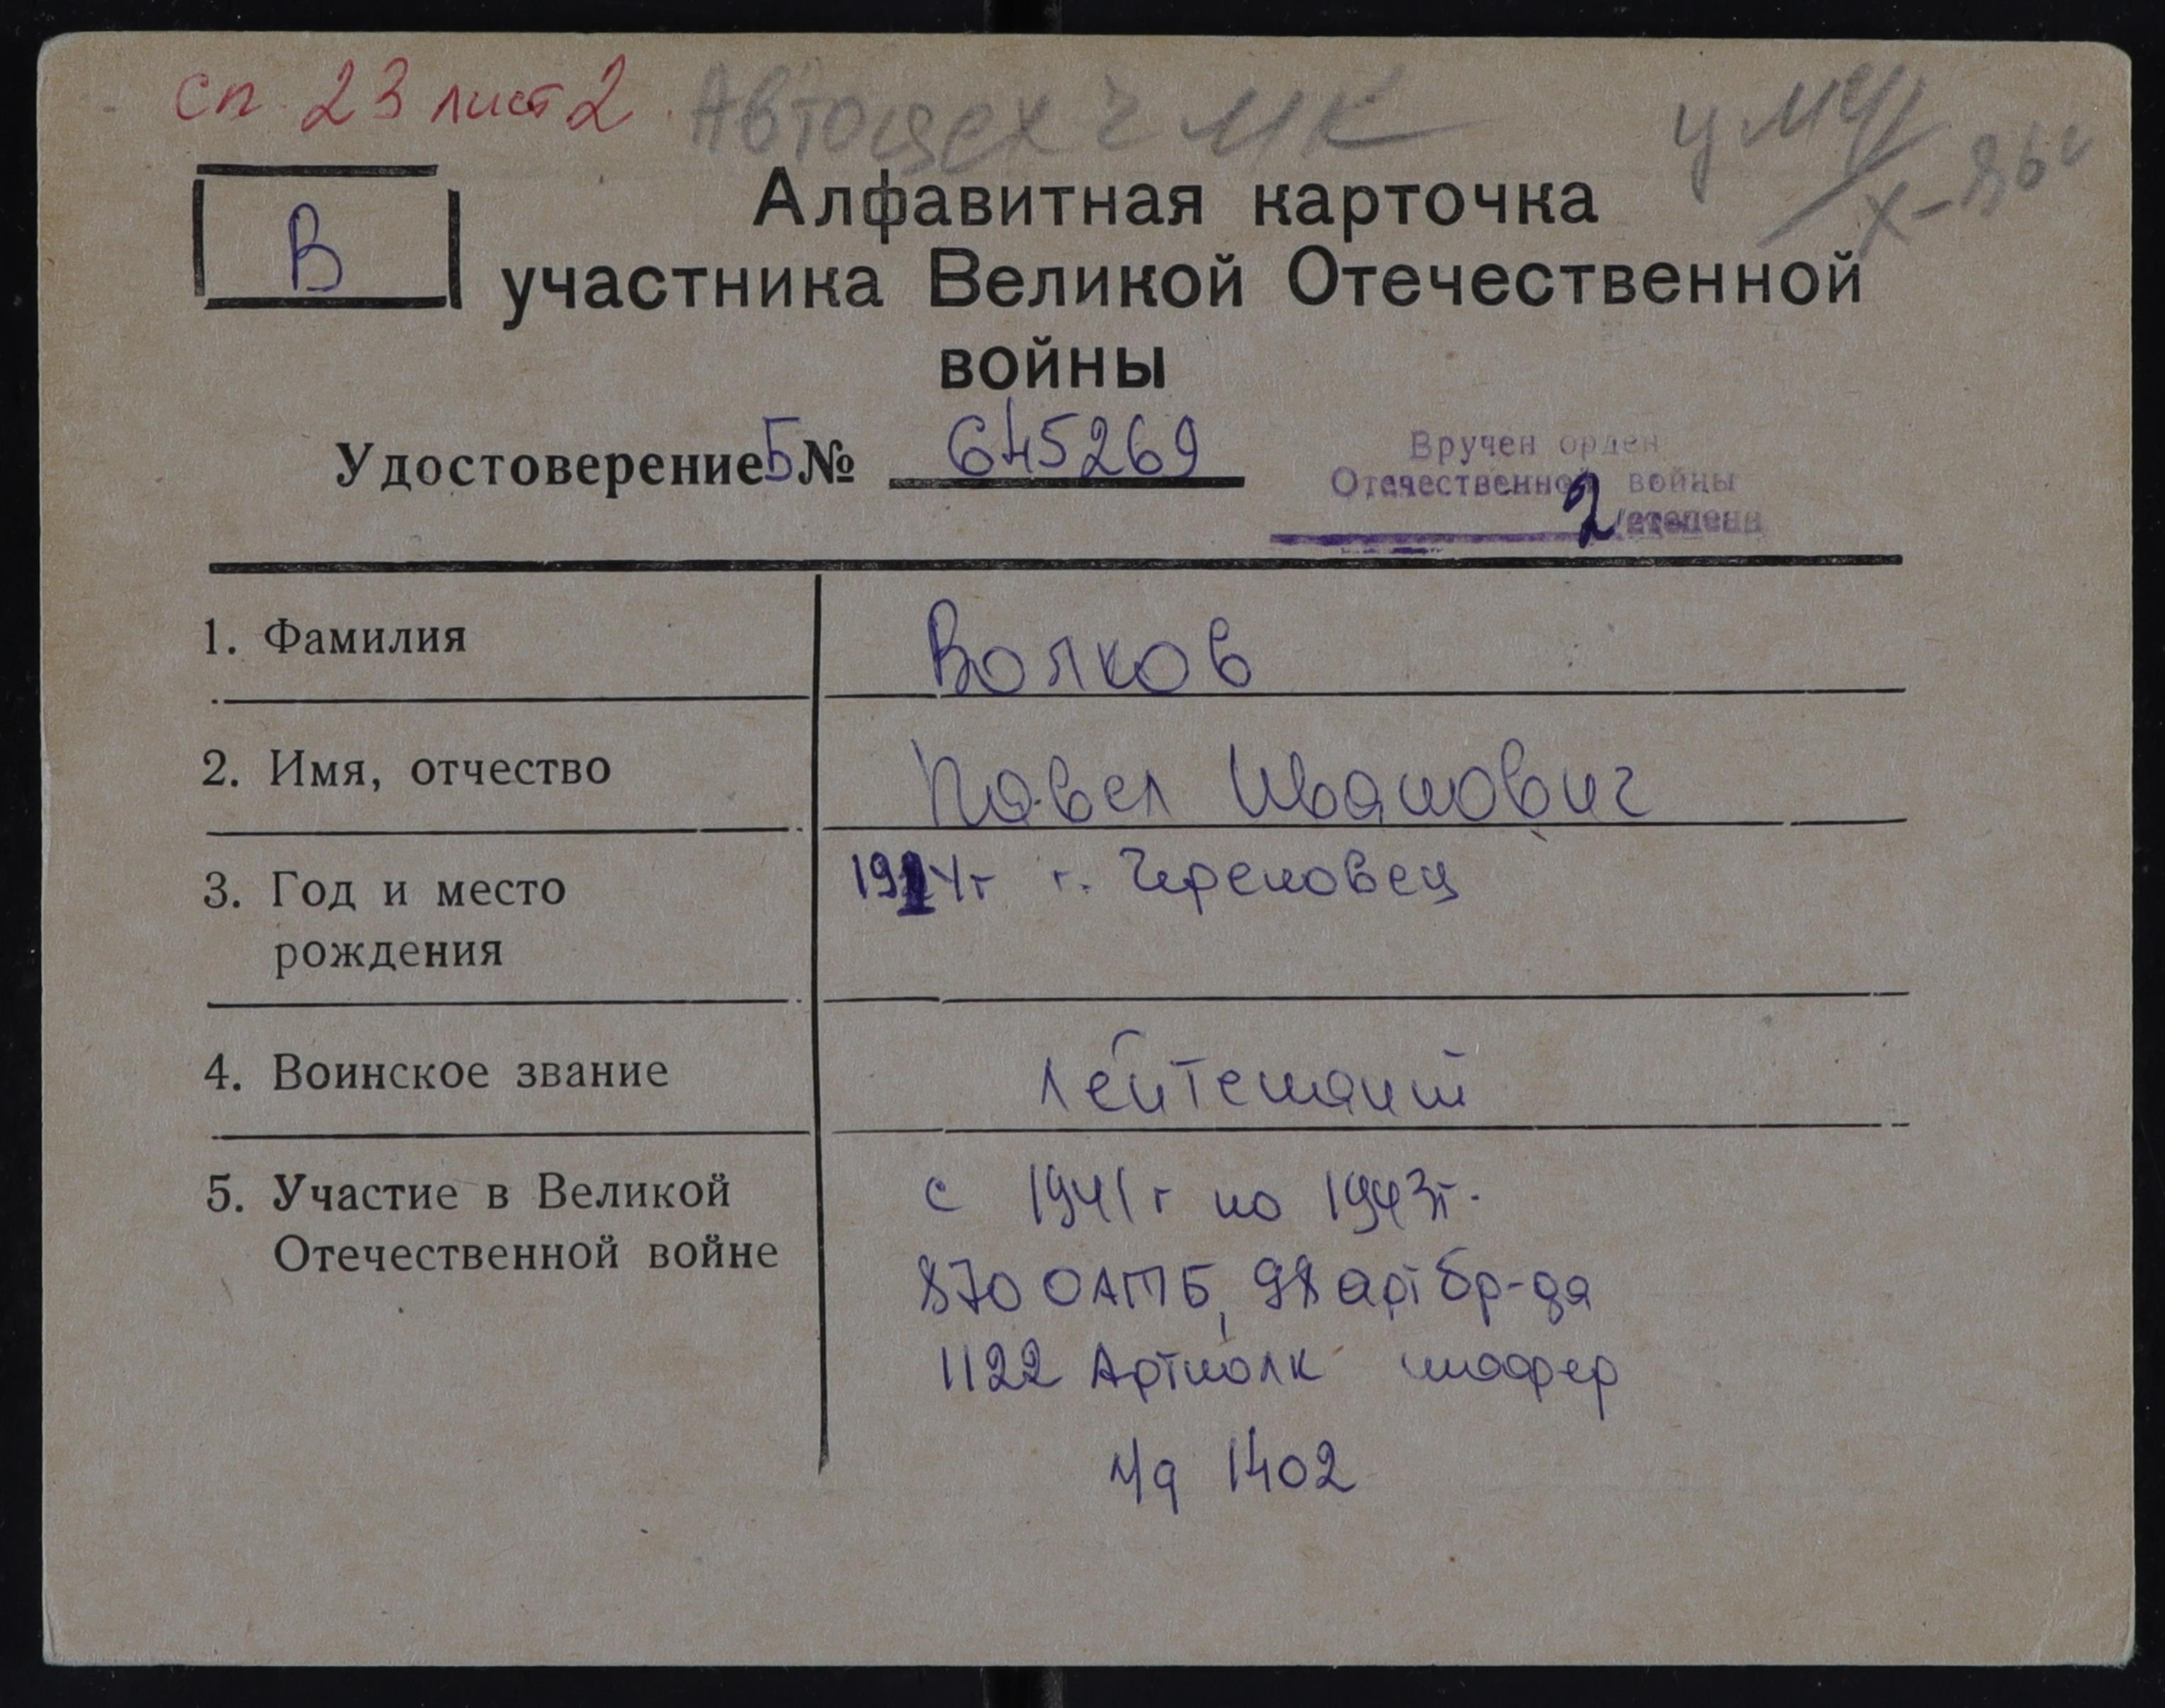 сп. 23 лист 2. Автоцех ЧМК
В
Алфавитная карточка
участника Великой Отечественной
войны
Удостоверение Б № 645269
Вручен орден
Отечественной войны
2 степени
1. Фамилия Волков
2. Имя, отчество Павел Иванович
3. Год и место 1914г г. Череповец
рождения
4. Воинское звание лейтенант
5. Участие в Великой с 1941г по 1943г.
Отечественной войне 870 ОАТБ, 98 арт бр-да
1122 Артполк шофер
1402